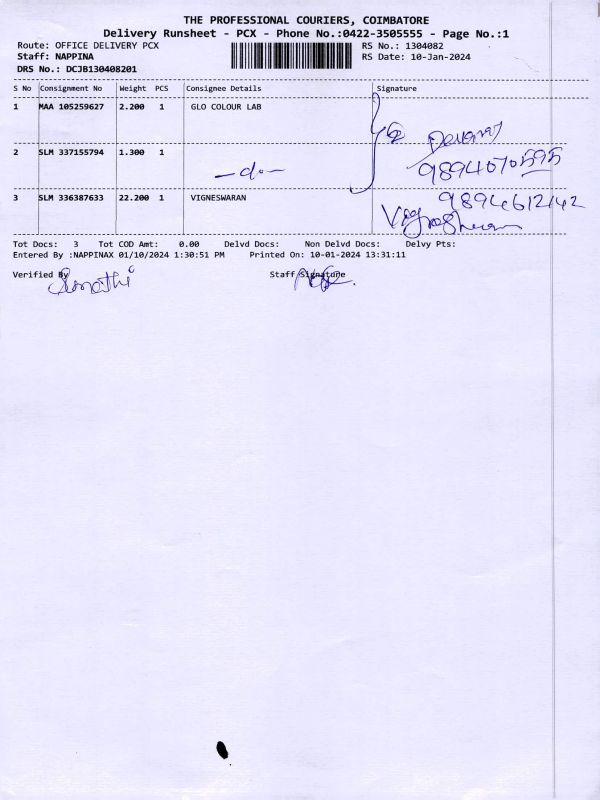 THE PROFESSIONAL COURIERS, COIMBATORE
Delivery Runsheet - PCX - Phone No.:0422-3505555 - Page No.:1
Route: OFFICE DELIVERY PCX RS No.: 1304082
Staff: NAPPINA RS Date: 10-Jan-2024
DRS No.: DCJB130408201
S No Consignment No Weight PCS Consignee Details Signature
1 MAA 105259627 2.200 1 GLO COLOUR LAB
2 SLM 337155794 1.300 1
-do- 9894070595
3 SLM 336387633 22.200 1 VIGNESWARAN 9894612142
Tot Docs: 3 Tot COD Amt: 0.00 Delvd Docs: Non Delvd Docs: Delvy Pts:
Entered By :NAPPINAX 01/10/2024 1:30:51 PM Printed On: 10-01-2024 13:31:11
Verified By Staff Signature